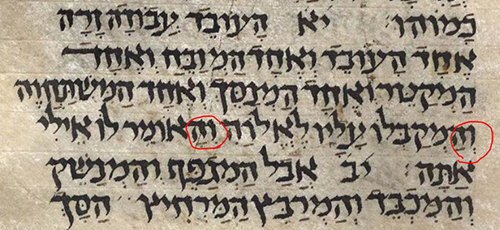 כָּמוֹהוּ יא הָעוֹבֵד עֲבוֹדָה זָרָה
אֶחָד הָעוֹבֵד וְאֶחָד הַמְזַבֵּחַ וְאֶחָד
הַמְקַטֵּר וְאֶחָד הַמְנַסֵּךְ וְאֶחָד הַמִּשְׁתַּחֲוֶוה
וְהַמְקַבְּלוֹ עָלָיו לֶאֱלוֹהַּ וְהָאוֹמֵר לוֹ אֵילִי
אַתָּה יב אֲבָל הַמְגַפֵּף וְהַמְנַשֵּׁק
וְהַמְכַבֵּד וְהַמְרַבֵּץ הַמַּרְחִיץ הַסָּךְ